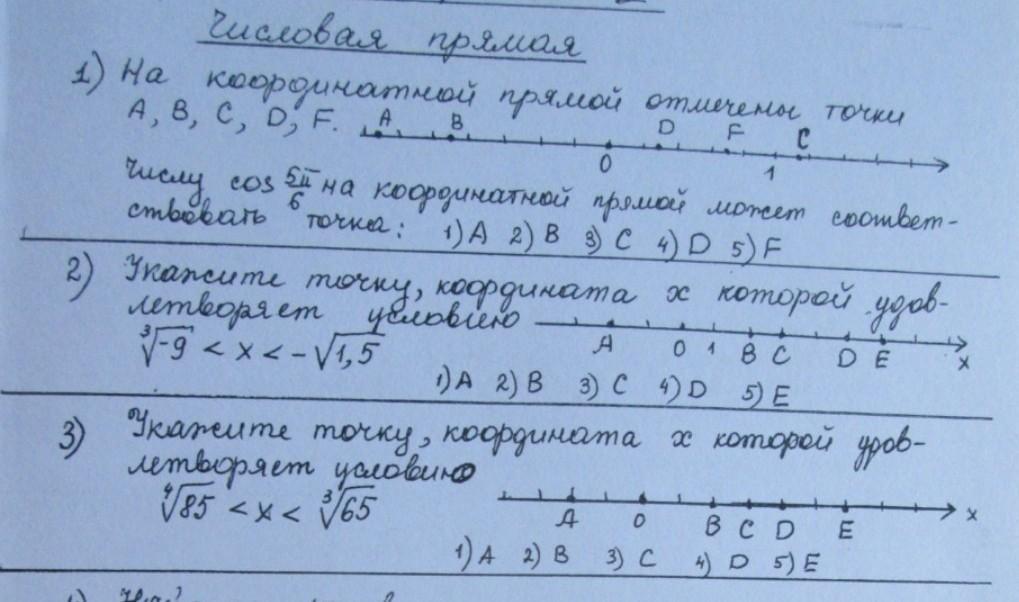 Числовая прямая
1) На координатной прямой отмечены точки
A, B, C, D, F. A B 0 D F 1 C
Числу cos 5π/6 на координатной прямой может соответ-
ствовать точка: 1) A 2) B 3) C 4) D 5) F
2) Укажите точку, координата x которой удов-
летворяет условию A 0 1 B C D E x
∛-9 < x < -√1,5
1) A 2) B 3) C 4) D 5) E
3) Укажите точку, координата x которой удов-
летворяет условию
∜85 < x < ∛65 A 0 B C D E x
1) A 2) B 3) C 4) D 5) E